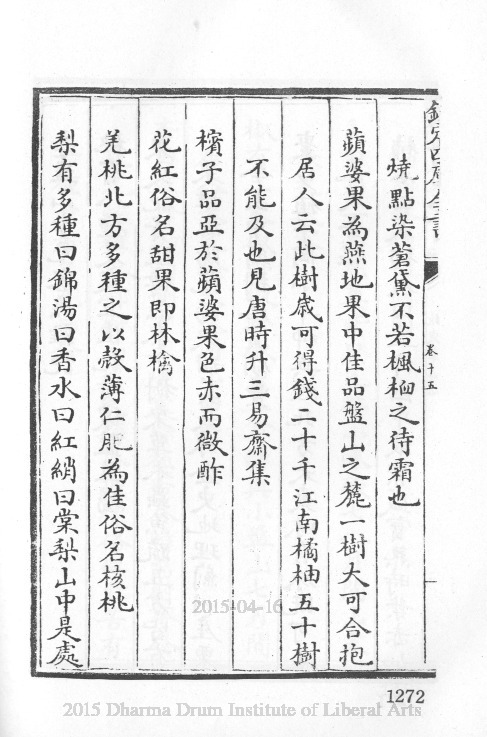 欽定四庫全書
卷十五
燒點染蒼黛不若楓桕之待霜也
蘋婆果為燕地果中佳品盤山之麓一樹大可合抱
居人云此樹歲可得錢二十千江南橘柚五十樹
不能及也見唐時升三易齋集
檳子品亞於蘋婆果色赤而微酢
花紅俗名甜果即林檎
羌桃北方多種之以殼薄仁肥為佳俗名核桃
梨有多種曰錦湯曰香水曰紅綃曰棠梨山中是處
2015-04-16
1272
2015 Dharma Drum Institute of Liberal Arts